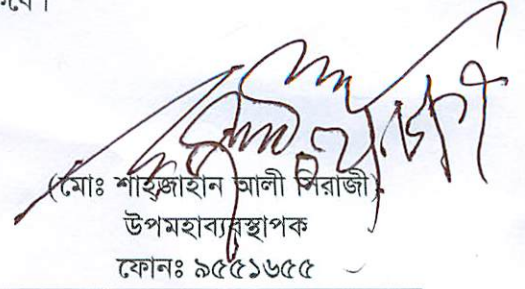 (মোঃ শাহজাহান আলী সিরাজী)
উপমহাব্যবস্থাপক
ফোনঃ ৯৫৫১৬৫৫